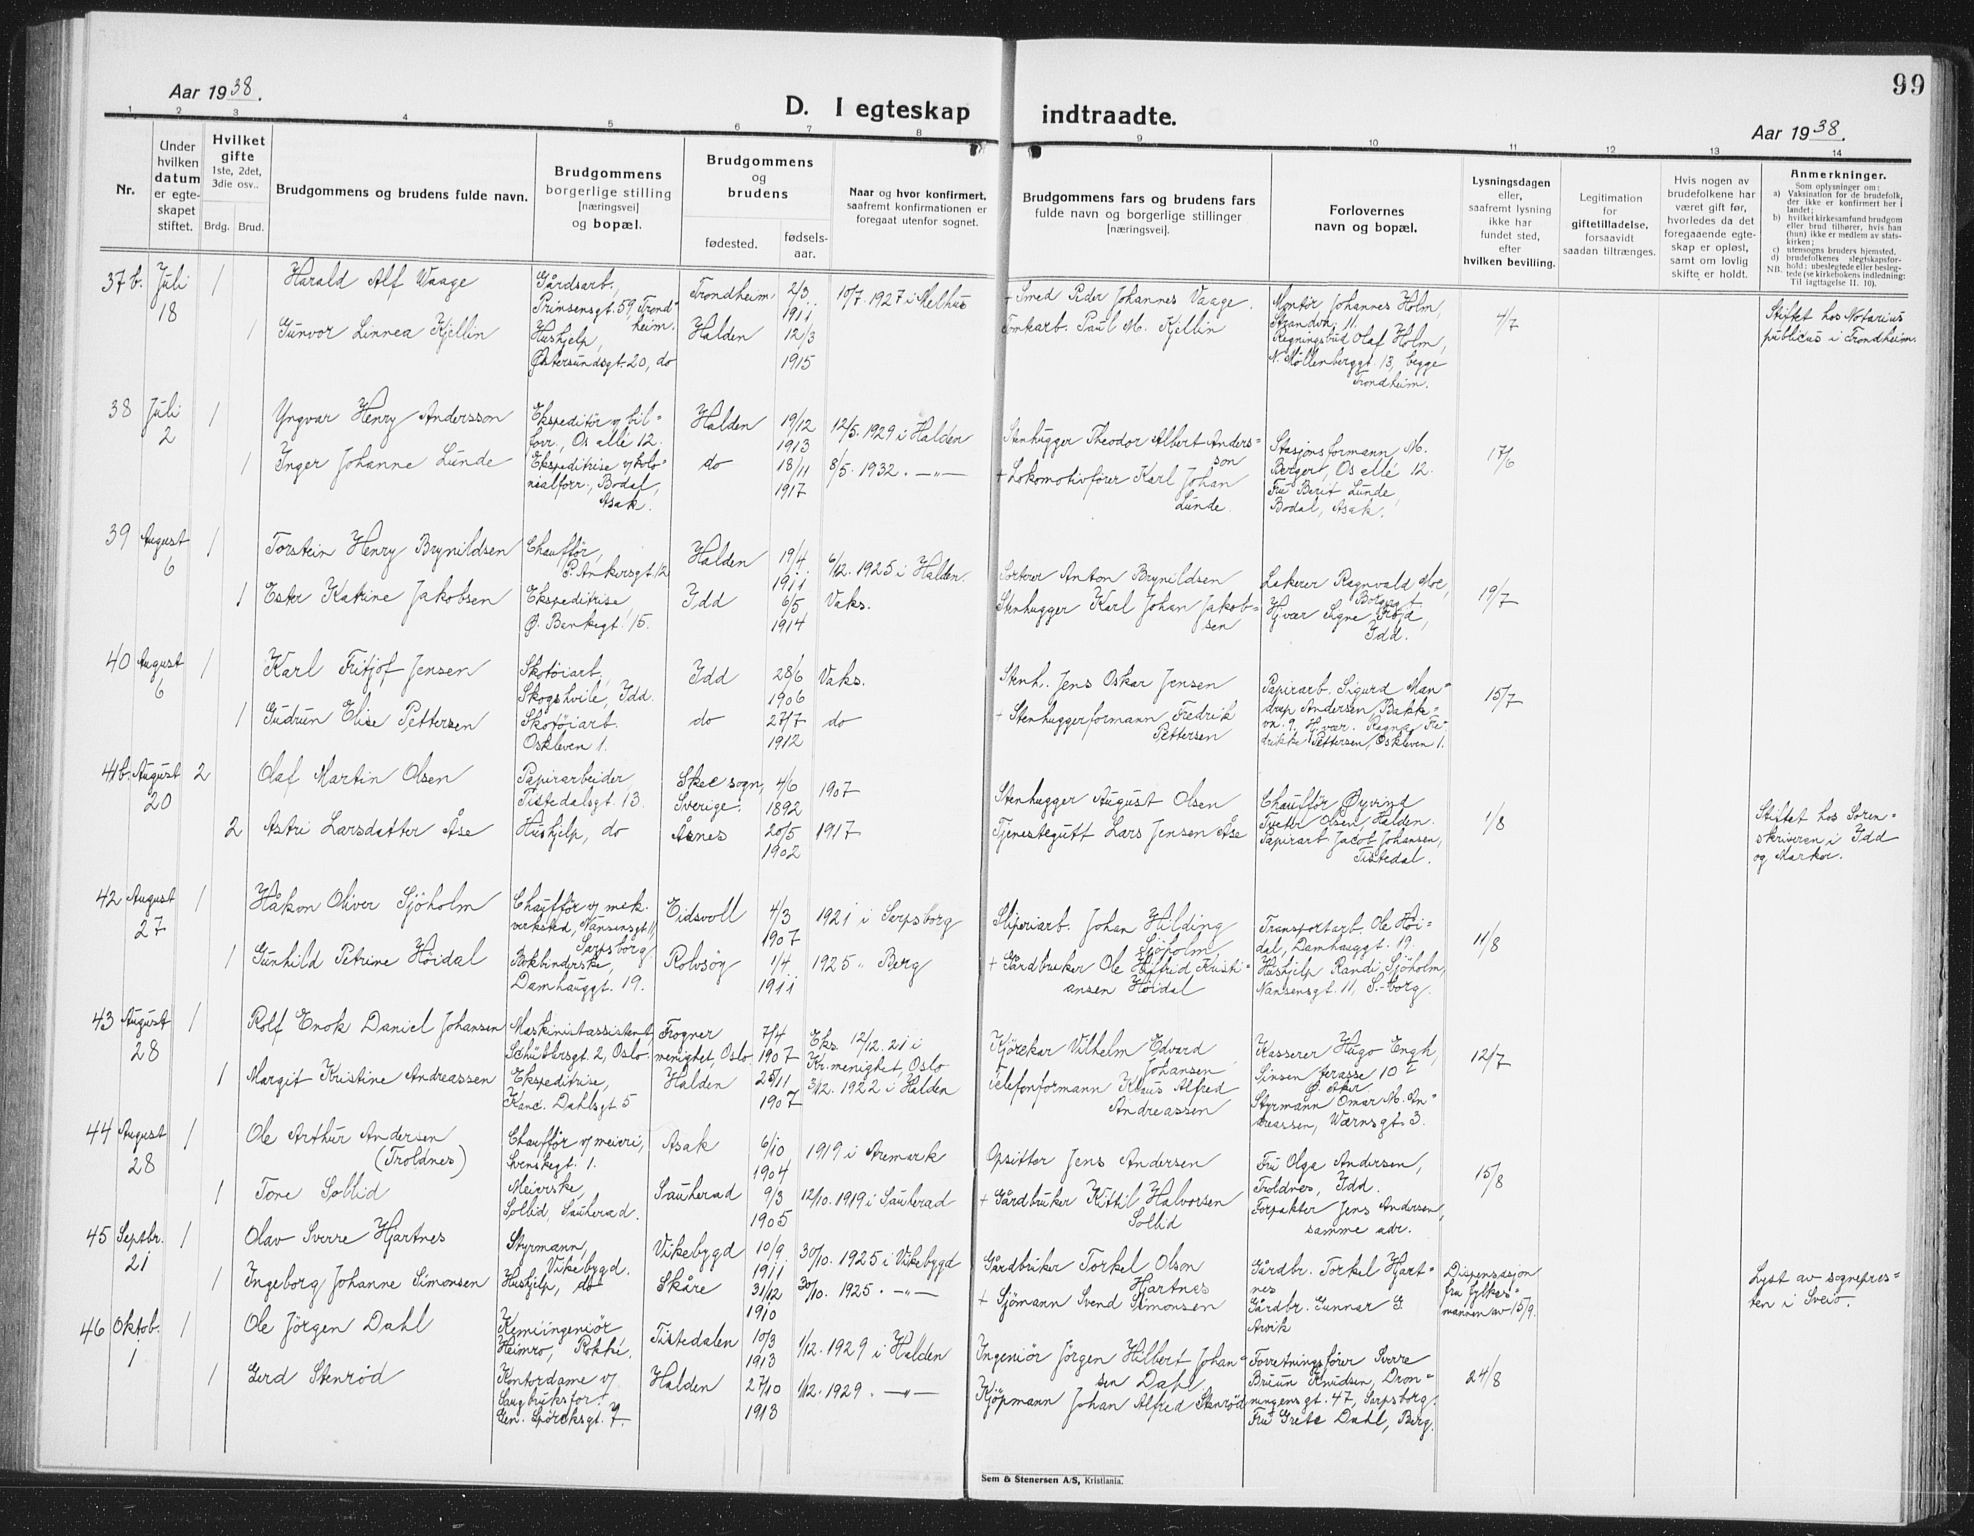 99
Aar 1938.
D. I egteskap indtraadte.
Aar 1938.
1 2 3 4 5 6 7 8 9 10 11 12 13 14
Nr.
Under hvilken datum er egteskapet stiftet.
Hvilket gifte
1ste, 2det, 3die osv..
Brdg. Brud.
Brudgommens og brudens fulde navn.
Brudgommens borgerlige stilling [næringsvei] og bopæl.
Brudgommens og brudens
fødested. fødselsaar.
Naar og hvor konfirmert, saafremt konfirmationen er foregaat utenfor sognet.
Brudgommens fars og brudens fars fulde navn og borgerlige stillinger [næringsvei].
Forlovernes navn og bopæl.
Lysningsdagen eller, saafremt lysning ikke har fundet sted, efter hvilken bevilling.
Legitimation for giftetilladelse, forsaavidt saadan tiltrænges.
Hvis nogen av brudefolkene har været gift før, hvorledes da det foregaaende egteskap er opløst, samt om lovlig skifte er holdt.
Anmerkninger.
Som oplysninger om:
a) Vaksination for de brudefolk, der ikke er konfirmert her i landet;
b) hvilket kirkesamfund brudgom eller brud tilhører, hvis han (hun) ikke er medlem av statskirken;
c) utensogns bruders hjemsted.
d) brudefolkenes slegtskapsforhold: ubeslegtede eller beslegtede (se kirkebokens indledning: Til iagttagelse 11. 10).
NB.
37b. Juli 18 1 Harald Alf Vaage Gårdsarb., Prinsensgt. 59, Trondheim. Trondheim 2/3 1911 10/7. 1927 i Melhus + Smed Peder Johannes Vaage. Montør Johannes Holm, Strandvn. 11. 4/7 Stiftet hos Notarius publicus i Trondheim.
1 Gunvor Linnea Kjellin Hushjelp, Østersundsgt. 20, do Halden 12/3 1915 Tomtarb. Paul M. Kjellin Regningsbud Olaf Holm, N. Møllenberggt. 13, begge Trondheim.
38 Juli 2 1 Yngvar Henry Andersson Ekspeditör v/ bilforr., Os allé 12. Halden 19/12 1913 12/5. 1929 i Halden Stenhugger Theodor Albert Andersson Stasjonsformann M. Berger, Os allé 12. 17/6
1 Inger Johanne Lunde Ekspeditrise v/ kolonialforr., Bodal, Asak. do 18/11 1917 8/5. 1932. —"— + Lokomotivförer Karl Johan Lunde. Fru Berit Lunde, Bodal, Asak.
39 August 6 1 Torstein Henry Brynildsen Chauffør, P. Ankersgt. 12 Halden 19/4 1911 6/12. 1925 i Halden. Sorterer Anton Brynildsen Lakerer Ragnvald Moe, Borgergt. 19/7
1 Ester Katrine Jakobsen Ekspeditrise Ø. Bankegt. 15. Idd 6/5 1914 Vaks. Stenhugger Karl Johan Jakobsen Hj.vær. Signe Fröjd, Idd.
40 August 6 1 Karl Fritjof Jensen Skotöiarb., Skogshvile, Idd. Idd 28/6 1906 Vaks. Stenh. Jens Oskar Jensen Papirarb. Sigurd Mandrup Andersen, Bakkevn. 9, 15/7
1 Gudrun Elise Pettersen Skotöiarb. Oskleven 1. do 27/7 1912 do + Stenhuggerformann Fredrik Pettersen Hj.vær. Ragna Fredrikke Pettersen, Oskleven 1.
41b. August 20 2 Olaf Martin Olsen Papirarbeider, Tistedalsgt. 13. Skee sogn, Sverige. 4/6 1892 1907 Stenhugger August Olsen Chauffør Øyvind Tveter Olsen, Halden. 1/8 Stiftet hos Sorenskriveren i Idd og Marker.
2 Astri Larsdatter Åse Hushjelp, do Åsnes 20/5 1902 1917 Tjenestegutt Lars Jensen Åse Papirarb. Jacob Johansen, Tistedal.
42 August 27 1 Håkon Oliver Sjöholm Chauffør v/ mek. verksted, Nansensgt. 11, Sarpsborg Eidsvoll 4/3 1907 1921 i Sarpsborg Sliperiarb. Johan Hilding Sjöholm Transportarb. Ole Höidal, Damhauggt. 19. 11/8
1 Gunhild Petrine Höidal Bokbinderske, Damhauggt. 19. Rolvsöy 1/4 1911 1925 " Berg + Gårdbruker Ole Kristiansen Höidal Hushjelp Randi Sjöholm, Nansensgt. 11, S.-borg.
43 August 28 1 Rolf Enok Daniel Johansen Maskinistassistent, Schüblersgt. 2, Oslo. Frogner menighet, Oslo 7/4 1907 Eks. 12/12. 21 i Kr. menighet, Oslo Kjörekar Vilhelm Edvard Johansen Kasserer Hugo Engh, Sinsen terasse 10 I Ø. Aker 12/7
1 Margit Kristine Andreassen Ekspeditrise, Kanc. Dahlsgt 5 Halden 25/11 1907 3/12. 1922 i Halden Telefonformann Klaus Alfred Andreassen Styrmann Omar M. Andreassen, Wærnsgt. 3.
44 August 28 1 Ole Arthur Andersen (Troldnes) Chauffør v/ meieri, Svenskegt. 1. Asak 6/10 1904 1919 i Aremark Opsitter Jens Andersen Fru Olga Andersen, Troldnes, Idd. 15/8
1 Tone Sollid Meierske, Sollid, Sauherad. Sauherad 9/3 1905 12/10. 1919 i Sauherad + Gårdbruker Kittil Halvorsen Sollid Forpakter Jens Andersen, samme adr.
45 Septbr. 21 1 Olav Sverre Hjartnes Styrmann, Vikebygd. Vikebygd 10/9 1911 30/10. 1925 i Vikebygd Gårdbruker Torkel Olson Hjartnes Gårdbr. Torkel Hjartnes Dispensasjon fra fylkesmannen av 15/9. Lyst av sognepresten i Sveio.
1 Ingeborg Johanne Simonsen Hushjelp, do Skåre 31/12 1910 30/10. 1925. —"— + Sjömann Svend Simonsen Gårdbr. Gunnar G. Arvik
46 Oktob. 1 1 Ole Jörgen Dahl Kemiingeniör Heimro, Rokke. Tistedalen 10/3 1913 1/12. 1929 i Halden Ingeniör Jörgen Hilbert Johansen Dahl Forretningsfører Sverre Bruun Knudsen, Dronningensgt. 47, Sarpsborg. 24/8
1 Gerd Stenröd Kontordame v/ Saugbruksfor. Gen. Spörcksgt. 7. Halden 27/10 1913 1/12. 1929. —"— Kjöpmann Johan Alfred Stenröd Fru Grete Dahl, Berg.
Sem & Stenersen A/S, Kristiania.